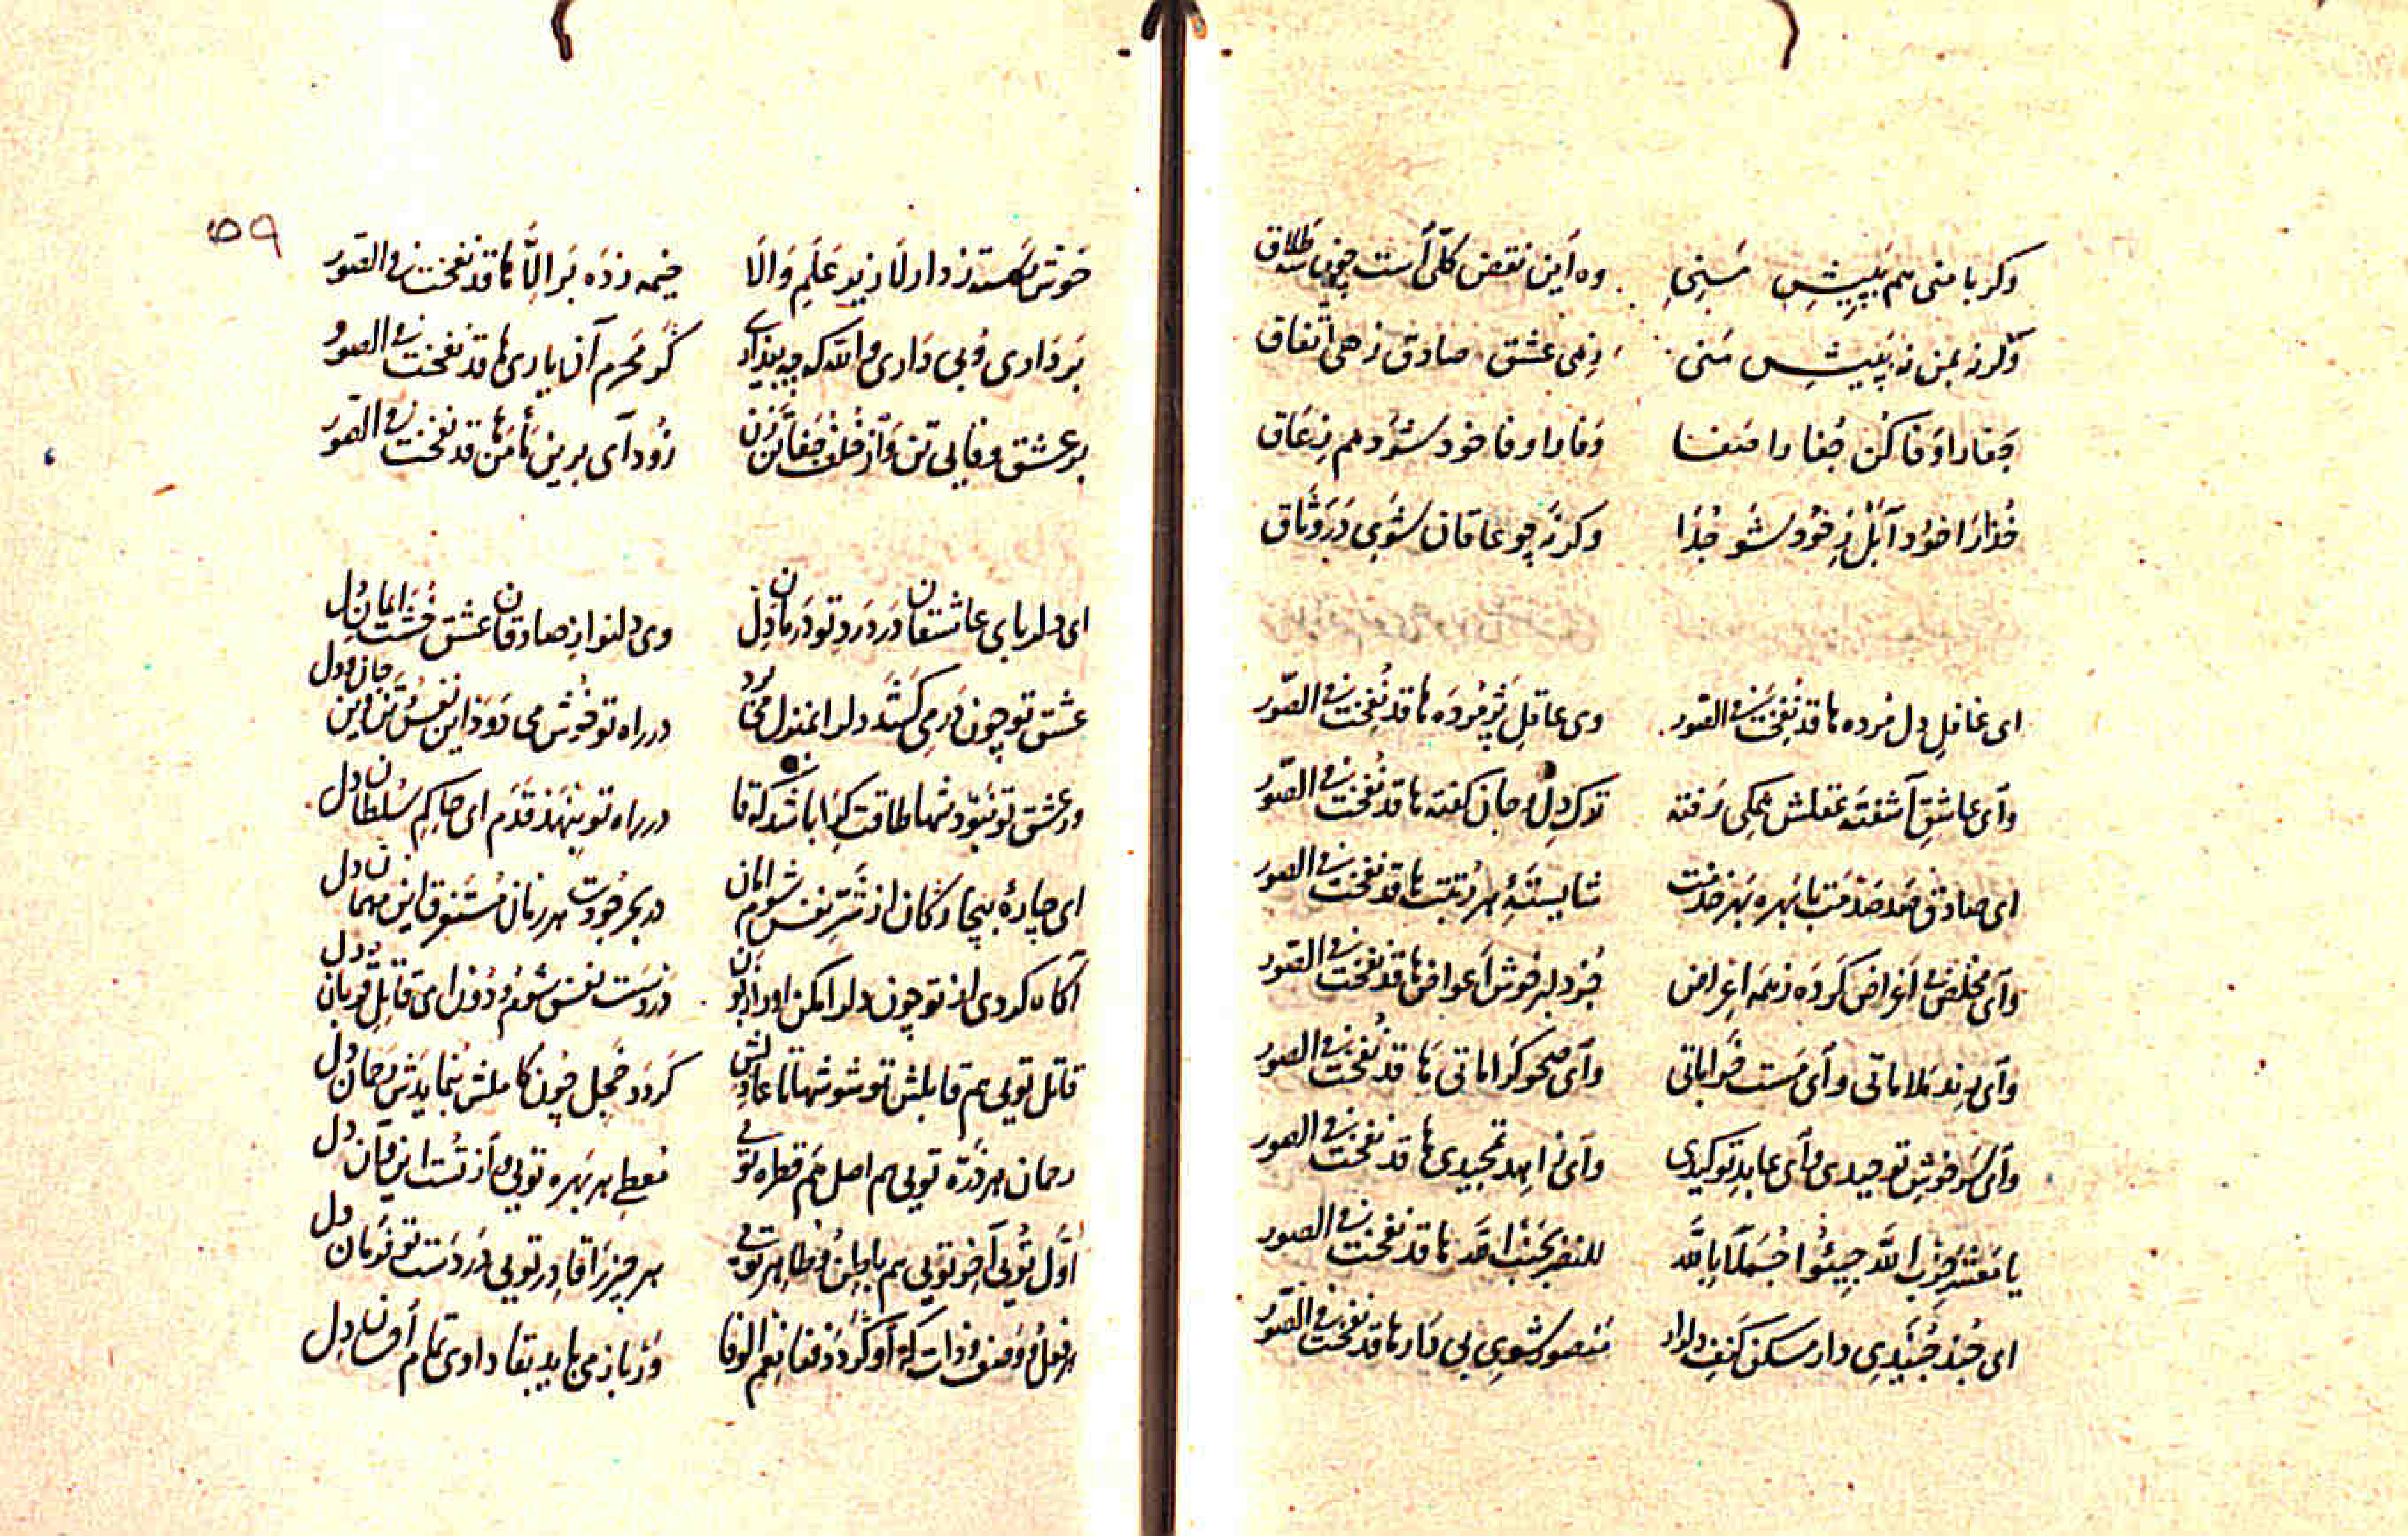 وكر با منی هم بپیش سنی وه این نقص كلی است چون شد طلاق
وكر نه بمن نه بپیش منی زهی عشق صادق زهی اتفاق
جفا را وفا كن جفا را صفا وفا را وفا خود شود هم زعاق
خدا را خود آ بل ز خود شو خدا وكرنه چو عاقان شوی در وثاق
ای غافل دل مرده ها قد نفخت فی الصور وی عاقل پژمرده ها قد نفخت فی الصور
وآی عاشق آشفته عقلش همكی رفته ترك دل و جان كفته ها قد نفخت فی الصور
ای صادق صد خدمت با بهره بهر خدمت شایستهٔ هر رتبت ها قد نفخت فی الصور
وآی مخلص اغراض كرده ز همه اعراض جز دلبر خوش اعواض ها قد نفخت فی الصور
وآی رند ملاماتی وآی مست خراباتی وآی صحو كراماتی ها قد نفخت فی الصور
وآی سر خوش توحیدی وآی عابد توكیدی وآی زاهد تمجیدی ها قد نفخت فی الصور
یا معشر حزب الله جیئوا جملا بالله للنضر بجنب الله ها قد نفخت فی الصور
ای جند جنیدی دار مسكن كنف دلدار منصور شوی بی دار ها قد نفخت فی الصور
٥٩
خوش رسته ز دار لا زیر علم والا خیمه زده بر الا ها قد نفخت فی الصور
بر داری و بی داری والله كه چه بیداری كر محرم آن یاری ها قد نفخت فی الصور
بر عشق وفایی تن واز خلف جفا زن زود آی برین مأمن ها قد نفخت فی الصور
ای دلربای عاشقان در درد تو درمان دل وی دلنواز صادقان عشق خوشت ایمان دل
عشق تو چون در می كشد دلرا بمنزل می برد در راه تو خوش می دود این نفس و تن وین جان و دل
در عشق تو نبود شها طاقت كرا باشد كه تا در راه تو بنهد قدم ای حاكم سلطان دل
ای چارهٔ بیچاركان از شر نفس شوم امان در بحر جودت هر زمان مستغرق این مهمان دل
آكاه كردی از تو چون دلرا مكن او را زبون در دست نفس شوم و دون ای قابل قربان دل
قاتل تویی هم قابلش تو شو شها تا عادلش كردد خجل چون كاملش بنمایدش رحمان دل
رحمان هر ذره تویی هم اصل هم قطره تویی معطی هر بهره تویی واز تست این و آن دل
اول تویی آخر تویی هم باطن و ظاهر تویی هر چیز را قادر تویی در دست تو فرمان دل
هر فعل و وصف و ذات كه او كردد فنا نعم الوفا ور باز می باید بقا دادی تمام آن دل